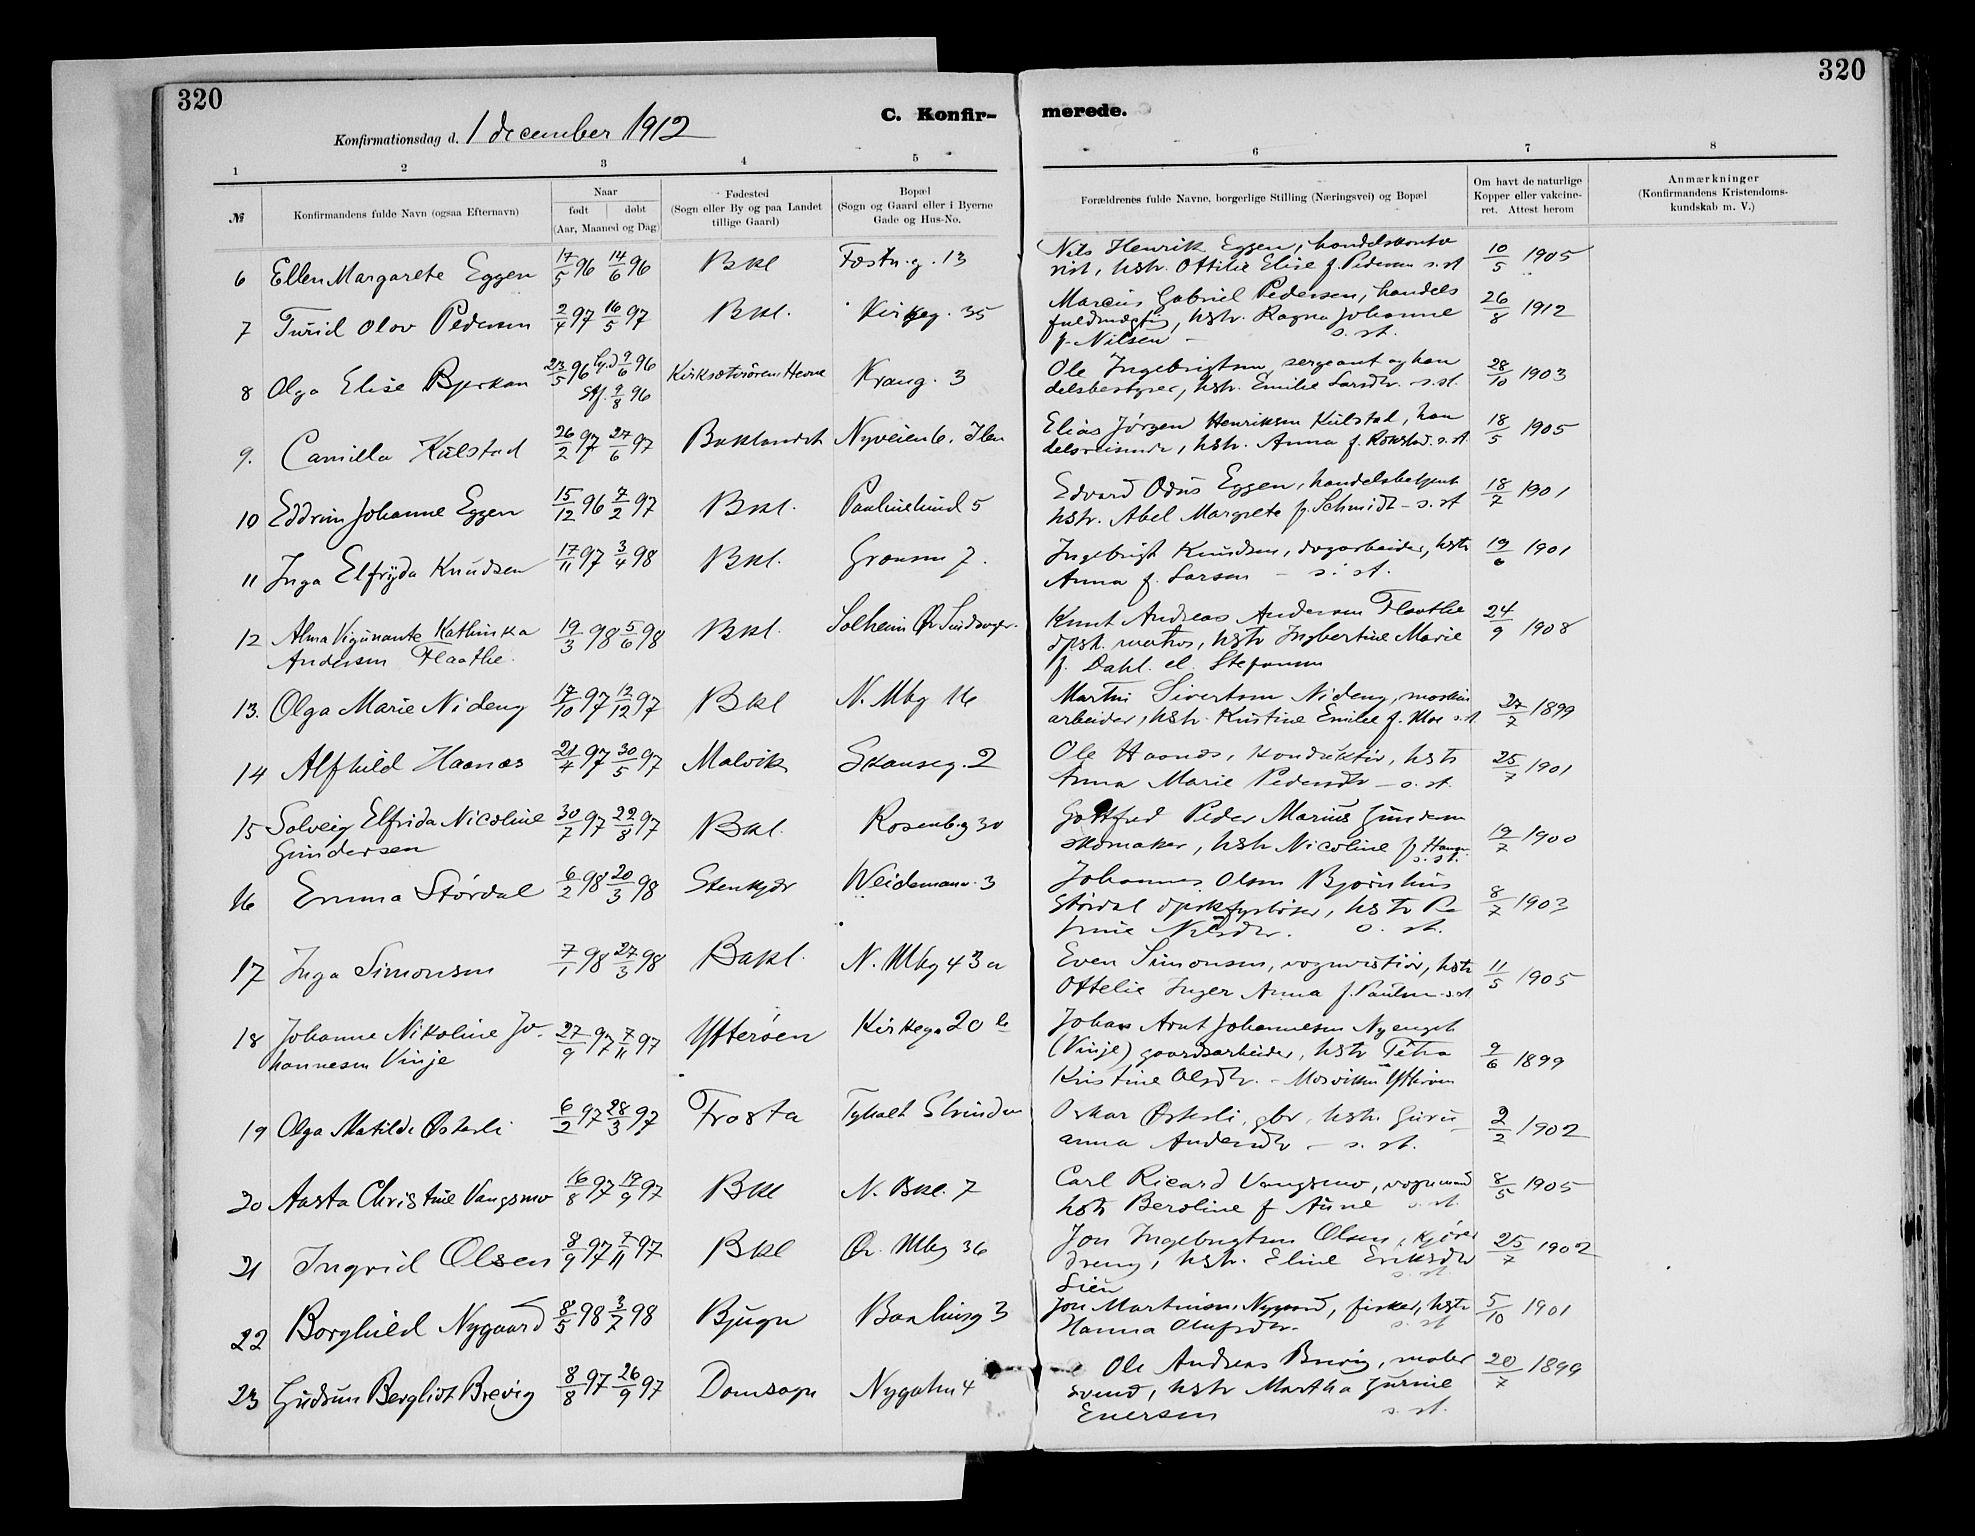 320
320
C. Konfir-
merede.
Konfirmationsdag d. 1 december 1912
1 2 3 4 5 6 7 8
№
Konfirmandens fulde Navn (ogsaa Efternavn)
Naar
født døbt
(Aar, Maaned og Dag)
Fødested
(Sogn eller By og paa Landet
tillige Gaard)
Bopæl
(Sogn og Gaard eller i Byerne
Gade og Hus-No.
Forældrenes fulde Navne, borgerlige Stilling (Næringsvei) og Bopæl
Om havt de naturlige
Kopper eller vakcine-
ret. Attest herom
Anmærkninger
(Konfirmandens Kristendoms-
kundskab m. V.)
6 Ellen Margarete Eggen 17/5 96 14/6 96 Bkl Fæstn.g. 13 Nils Henrik Eggen, handelskonto 10/5 1905
rist, hstr. Ottilie Elise f. Pedersen s. st
7 Turid Olov Pedersen 2/4 97 16/5 97 Bkl. Kirkeg. 35 Marcus Gabriel Pedersen, handels 26/8 1912
fuldmægtig, hstr. Ragna Johanne
f. Nilsen – s. st.
8 Olga Elise Bjerkan 23/5 96 hj.d 7/6 96 Kirksæterøren Hevne Kraug. 3 Ole Ingebrigtsen, sergeant og han 28/10 1903
stf. 9/8 96 delsbestyrer, hstr. Emilie Larsdtr. s. st.
9. Camilla Kulstad 26/2 97 27/6 97 Baklandet Nyveien 6. Ilen Elias Jørgen Henriksen Kulstad, han 18/5 1905
delsreisende, hstr. Anna f. Rokstad. s. st
10 Eddrun Johanne Eggen 15/12 96 7/2 97 Bkl. Paulinelund 5 Edvard Odus Eggen, handelsbetjent 18/7 1901
hstr. Abel Margrete f. Schmidt – s. st
11 Inga Elfryda Knudsen 17/11 97 3/4 98 Bkl. Grænsen 7. Ingebrigt Knudsen, dagarbeider, hstr 19/6 1901
Anna f. Larsen – s. st.
12 Alma Vigunante Kathinka 19/3 98 5/6 98 Bkl. Solheim Ør Knut Andreas Andersen Flaathe 24/9 1908
Andersen Flaathe. dpsk. matros, hstr Ingbertine Marie
f. Dahl. el. Stefansen
13. Olga Marie Nideng 17/10 97 12/12 97 Bkl N. Mbg 16 Martin Sivertsen Nideng, maskin 27/7 1899
arbeider, hstr. Kristine Emilie f. Moe s. st
14 Alfhild Haanæs 21/4 97 30/5 97 Malvik Skanseg. 2 Ole Haanæs, konduktør, hstr 25/7 1901
Anna Marie Pedersdtr – s. st.
15 Solveig Elfrida Nicoline 30/7 97 22/8 97 Bkl. Rosenb.g 30 Gottfred Peder Marius Gundersen 19/7 1900
Gundersen skomaker, hstr Nicoline f Haugen
s. st.
16 Emma Størdal 6/2 98 20/3 98 Stenkjær Weidemannv. 3 Johannes Olsen Bjørnhus 8/7 1903
Størdal dpskfyrbøter, hstr Pe
Nilsdtr. s. st.
17 Inga Simonsen 7/1 98 27/3 98 Bakl. N. Mbg 43 a Even Simonsen, vognvisitør, hstr 11/5 1905
Ottelie Inger Anna f. Paulsen s. st
18 Johanne Nikoline Jo- 27/9 97 7/11 97 Ytterøen Kirkeg. 20 b Johan Arnt Johannesen Nyenget 9/6 1899
hannesen Vinje (Vinje) gaardsarbeider, hstr Petra
Kristine Olsdtr. – Mosviken Ytterøen
19 Olga Matilde Østerli 6/2 97 28/3 97 Frosta Tyholt Strinden Oskar Østerli, gbr, hstr. Guru 2/2 1902
anna Andersdtr – s. st.
20 Aasta Christine Vangsmo 16/8 97 19/9 97 Bkl N. Bkl. 7 Carl Ricard Vangsmo, vognmand 8/5 1905
hstr Beroline f Aune s. st.
21 Ingrid Olsen 8/9 97 7/11 97 Bkl Ør. Mbg 36 Jon Ingebrigtsen Olsen, kjøre 25/7 1902
dreng, hstr. Eline Eriksdtr
Lien s. st.
22 Borghild Nygaard 8/5 98 3/7 98 Bjugn Baahusg 3 Jon Martinsen Nygaard, fisker, hstr 5/10 1901
Hanna Olufsdtr. s. st
23 Gudrun Bergliot Brevig 8/8 97 26/9 97 Domsogn Nygaten 4 Ole Andreas Brevig, maler 20/7 1899
svend, hstr Martha Gurine
Enersen s. st.